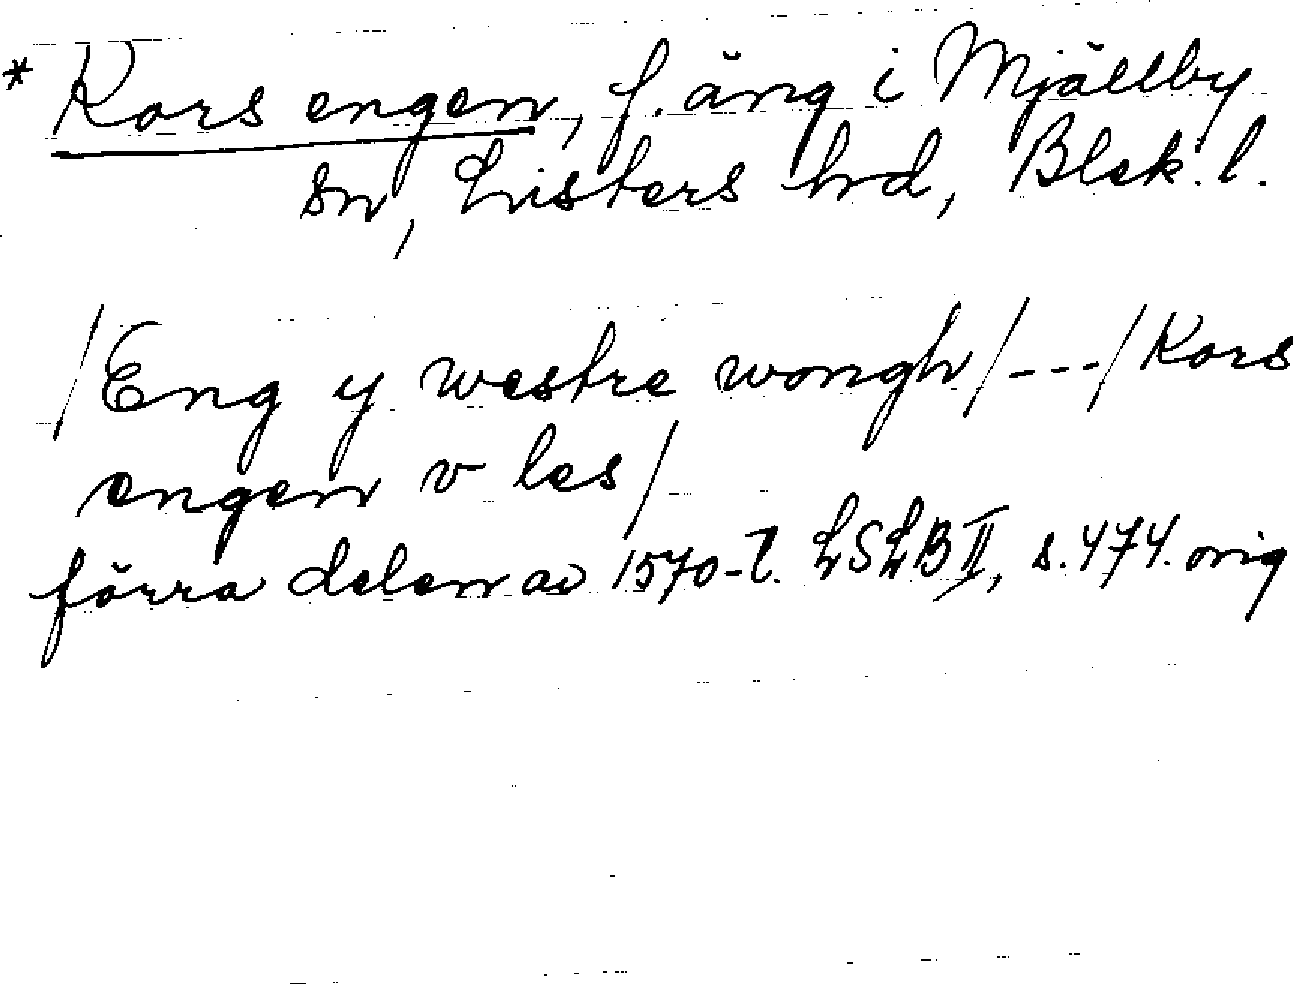 * Kors engen, f. äng i Mjällby
sn, Listers hrd, Blek. l.
/Eng y westre wongh/---/Kors
engen v les/
förra delen av 1570-t. LSLB II, s. 474. orig